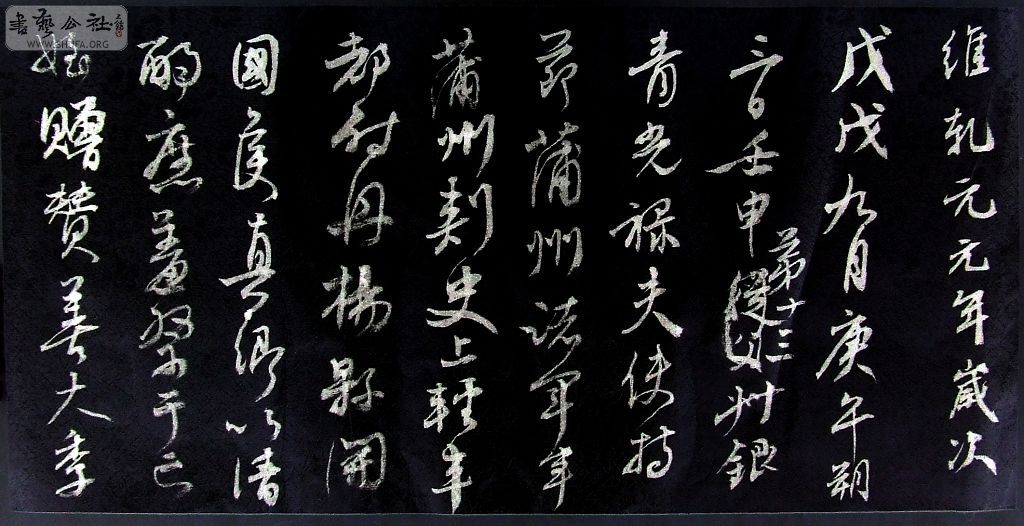 書藝公社
WWW.SHUFA.ORG
維乾元元年歲次
戊戌九月庚午朔
三日壬申第十三叔銀
青光祿夫使持
節蒲州諸軍事
蒲州刺史上輕車
都尉丹楊縣開
國侯真卿以清
酌庶羞祭于亡
姪贈贊善大季